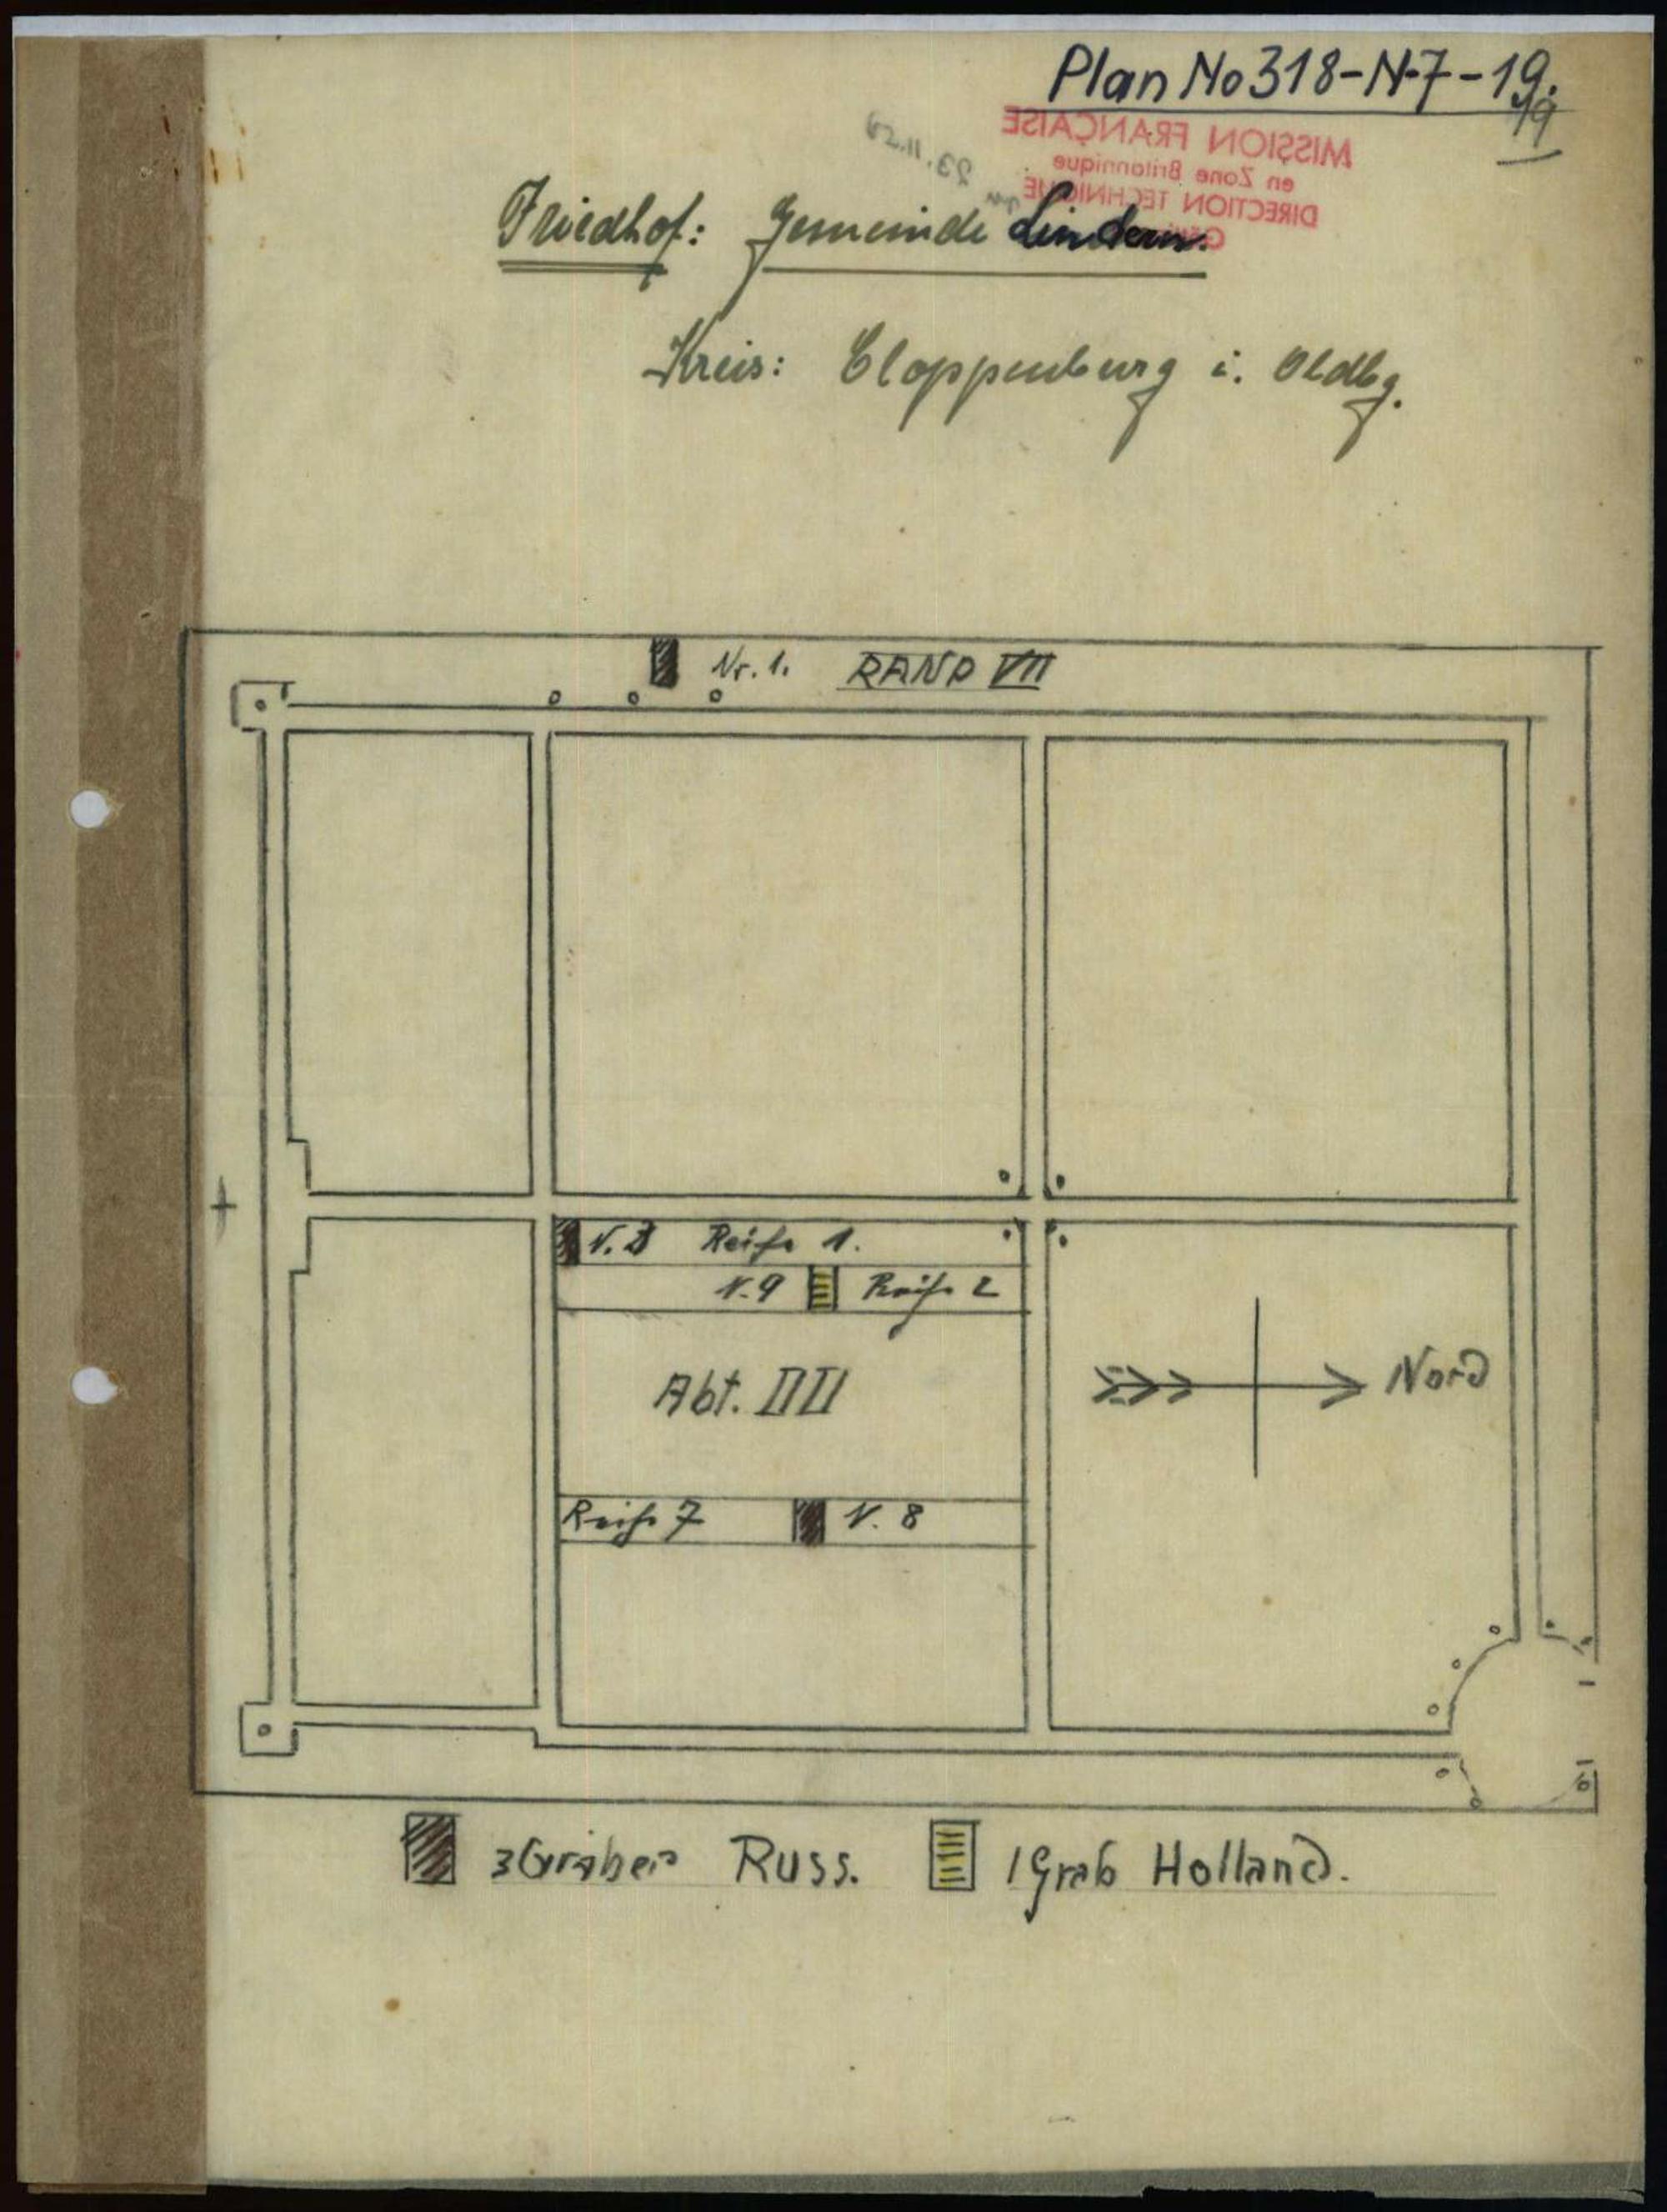 Plan No 318-N-7-19.
19
MISSION FRANÇAISE
en Zone Britannique
DIRECTION TECHNIQUE
23.11.59
Friedhof: Gemeinde Lindern.
Kreis: Cloppenburg i. Oldbg.
Nr. 1. RAND VII
N. 3 Reihe 1.
N. 9 Reihe 2
Abt. III
Nord
Reihe 7 N. 8
3 Gräber Russ. 1 Grab Holland.